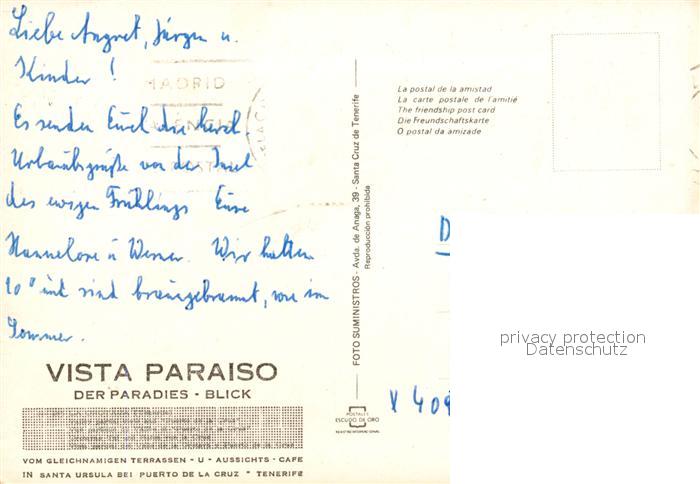 Liebe Angret, Jürgen u.
Kinder !
Es senden Euch die herzl.
Urlaubsgrüße von der Insel
des ewigen Frühlings Eure
Hannelore u Werner. Wir hatten
u sind braungebrannt, wie im
Sommer.
MADRID
VISTA PARAISO
DER PARADIES - BLICK
VOM GLEICHNAMIGEN TERRASSEN - U - AUSSICHTS - CAFE
IN SANTA URSULA BEI PUERTO DE LA CRUZ - TENERIFE
FOTO SUMINISTROS - Avda. de Anaga, 39 - Santa Cruz de Tenerife
Reproducción prohibida
POSTALES
ESCUDO DE ORO
La postal de la amistad
La carte postale de l'amitié
The friendship post card
Die Freundschaftskarte
O postal da amizade
D
privacy protection
Datenschutz